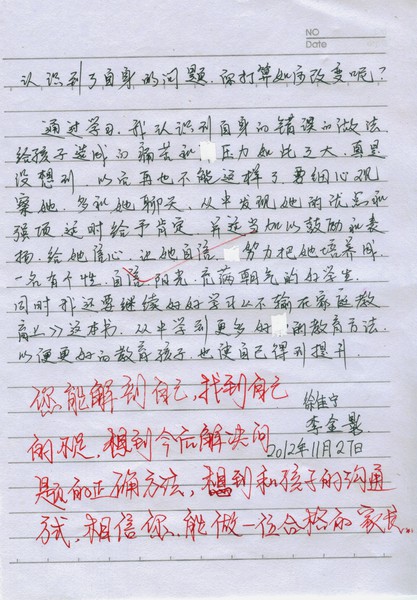 NO
Date
认识到了自身的问题，你打算如何改变呢？
通过学习，我认识到自身的错误的做法
给孩子造成的痛苦和压力如此之大，真是
没想到，以后再也不能这样了要细心观
察她，多和她聊天，从中发现她的优点和
强项适时给予肯定，并适当加以鼓励和表
扬，给她信心，让她自信 努力把她培养成
一名有个性，自信阳光，充满朝气的好学生
同时我还要继续好好学习《不输在家庭教
育上》这本书，从中学到更多好的教育方法，
以便更好的教育孩子，也使自己得到提升。
您能解到自己，找到自己
徐佳宁
李金影
的不足，想到今后解决问
2012年11月27日
题的正确方法，想到和孩子的沟通
方式，相信您，能做一位合格的家长。